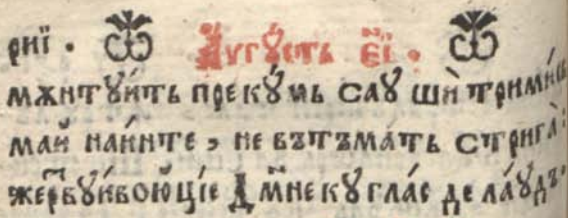 рнї · Ѿ А҆ѵгꙋ́стъ е҃і · Ѿ
мѫнтꙋи́тъ прекꙋ́мь саꙋ шѝ тримн́съ
май наи́нте, невътъма́тъ стрига̀:
жертвꙋи́воюціе Дм҃не кꙋгла́с делаꙋдъ·